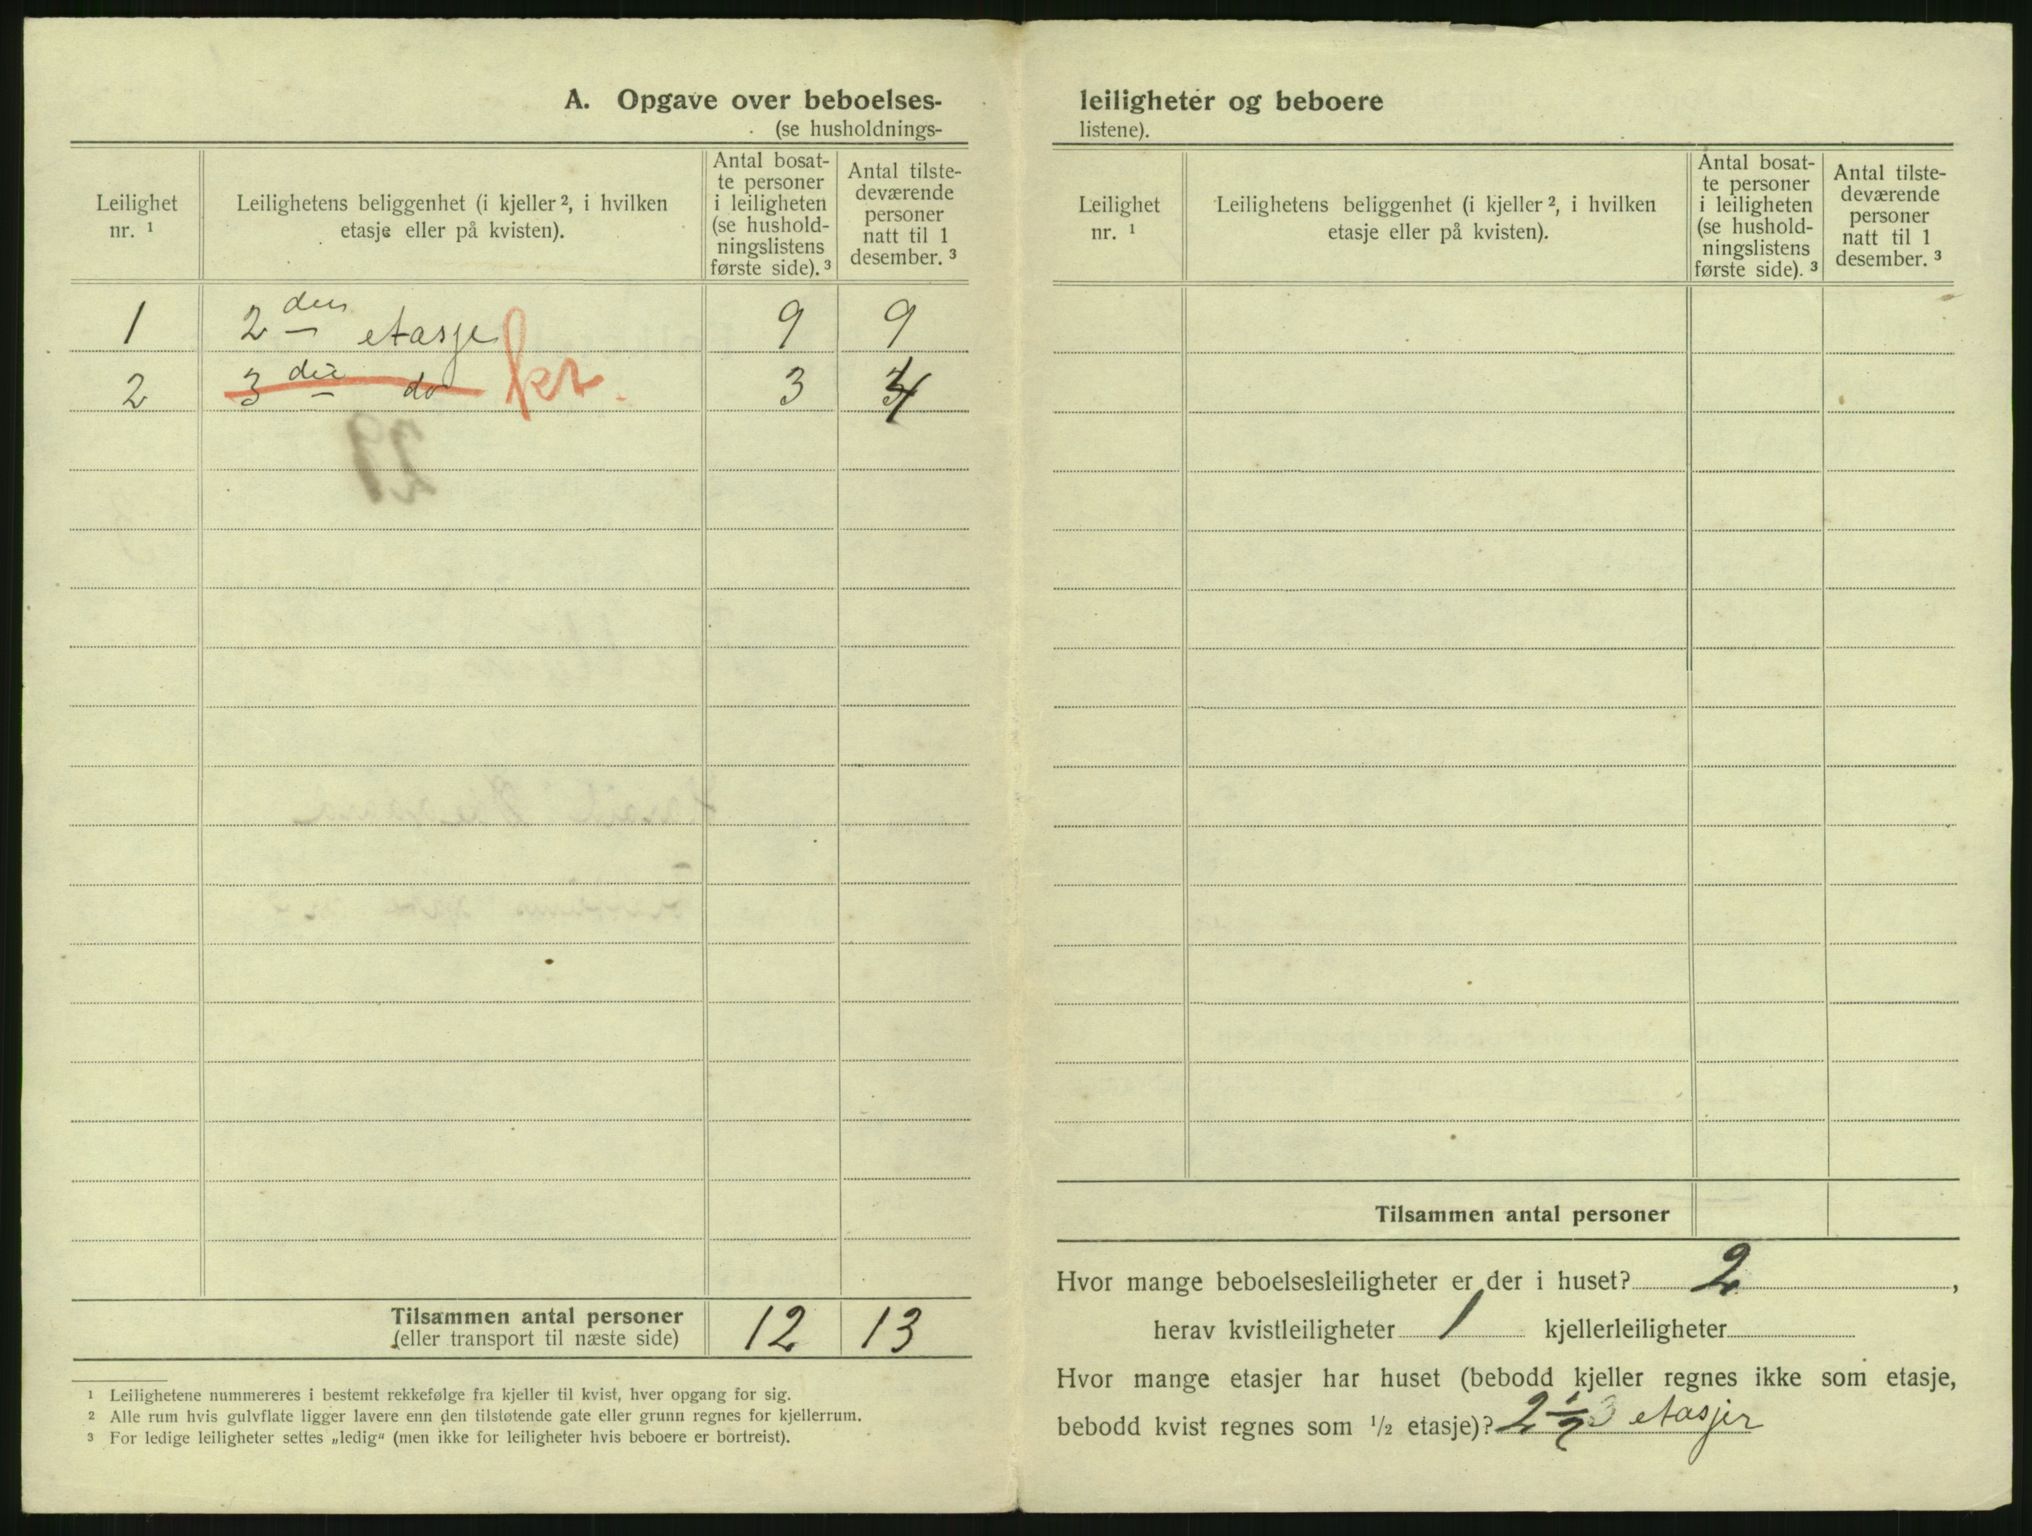 A. Opgave over beboelses-
(se husholdnings-
Leilighet
nr. 1
Leilighetens beliggenhet (i kjeller 2, i hvilken
etasje eller på kvisten).
Antal bosat-
te personer
i leiligheten
(se hushold-
ningslistens
første side). 3
Antal tilste-
deværende
personer
natt til 1
desember. 3
1 2 den etasje 9 9
2 3 die do kv. 3 4
Tilsammen antal personer 12 13
(eller transport til næste side)
1 Leilighetene nummereres i bestemt rekkefølge fra kjeller til kvist, hver opgang for sig.
2 Alle rum hvis gulvflate ligger lavere enn den tilstøtende gate eller grunn regnes for kjellerrum.
3 For ledige leiligheter settes „ledig“ (men ikke for leiligheter hvis beboere er bortreist).
leiligheter og beboere
listene).
Leilighet
nr. 1
Leilighetens beliggenhet (i kjeller 2, i hvilken
etasje eller på kvisten).
Antal bosat-
te personer
i leiligheten
(se hushold-
ningslistens
første side). 3
Antal tilste-
deværende
personer
natt til 1
desember. 3
Tilsammen antal personer
Hvor mange beboelsesleiligheter er der i huset? 2,
herav kvistleiligheter 1 kjellerleiligheter
Hvor mange etasjer har huset (bebodd kjeller regnes ikke som etasje,
bebodd kvist regnes som 1/2 etasje)? 2 1/2 etasjer